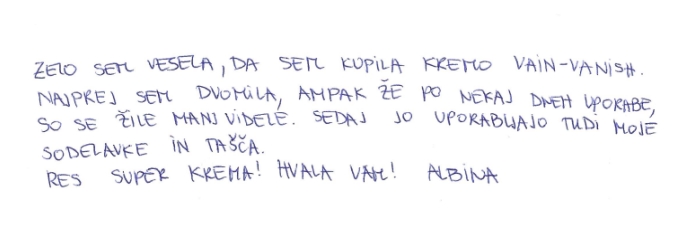 ZELO SEM VESELA, DA SEM KUPILA KREMO VAIN-VANISH.
NAJPREJ SEM DVOMILA, AMPAK ŽE PO NEKAJ DNEH UPORABE,
SO SE ŽILE MANJ VIDELE. SEDAJ JO UPORABLJAJO TUDI MOJE
SODELAVKE IN TAŠČA.
RES SUPER KREMA! HVALA VAM! ALBINA